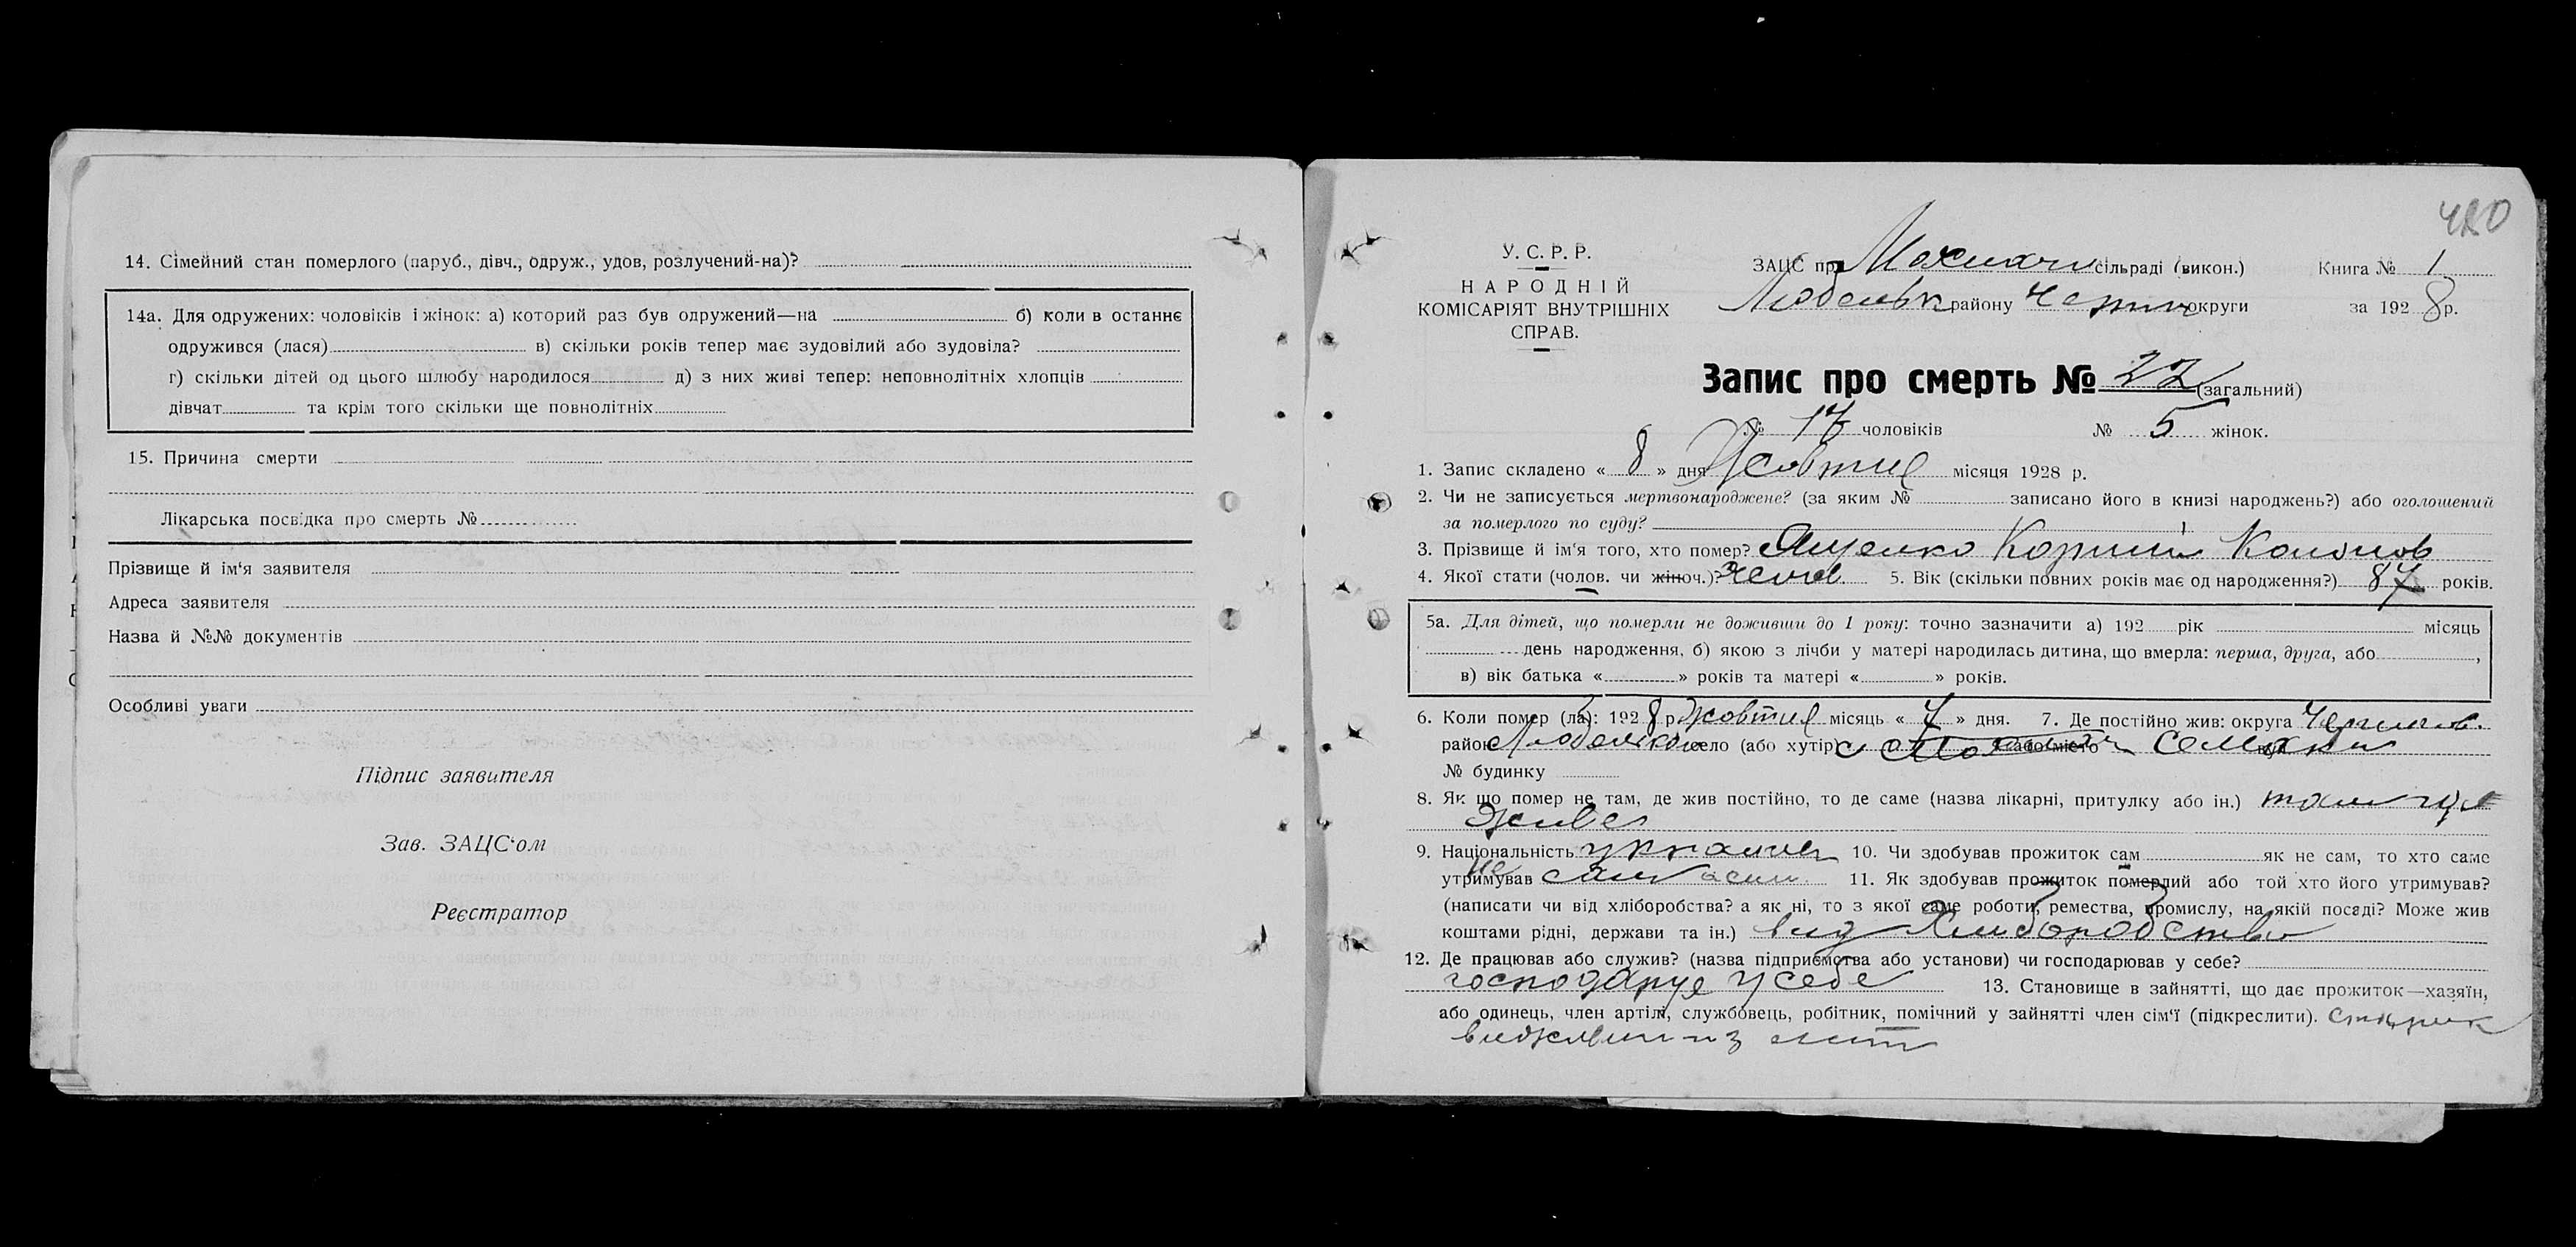 14. Сімейний стан померлого (паруб., дівч., одруж., удов, розлучений-на)?
14а. Для одружених: чоловіків і жінок: а) который раз був одружений—на б) коли в останнє
одружився (лася) в) скільки років тепер має зудовілий або зудовіла?
г) скільки дітей од цього шлюбу народилося д) з них живі тепер: неповнолітніх хлопців
дівчат та крім того скільки ще повнолітніх
15. Причина смерти
Лікарська посвідка про смерть №
Прізвище й ім'я заявителя
Адреса заявителя
Назва й №№ документів
Особливі уваги
Підпис заявителя
Зав. ЗАЦС'ом
Реєстратор
420
У. С. Р. Р.
НАРОДНІЙ
КОМІСАРІЯТ ВНУТРІШНІХ
СПРАВ.
ЗАЦС при сільраді (викон.) Книга № 1
району округи за 1928 р.
Запис про смерть № 22 (загальний)
№ 17 чоловіків № 5 жінок.
1. Запис складено « 8 » дня Жовтня місяця 1928 р.
2. Чи не записується мертвонароджене? (за яким № записано його в книзі народжень?) або оголошений
за померлого по суду?
3. Прізвище й ім'я того, хто помер? Ященко
4. Якої стати (чолов. чи жіноч.)? чолов. 5. Вік (скільки повних років має од народження?) 87 років.
5а. Для дітей, що померли не доживши до 1 року: точно зазначити а) 192 рік місяць
день народження, б) якою з лічби у матері народилась дитина, що вмерла: перша, друга, або ,
в) вік батька « » років та матері « » років.
6. Коли помер (ла): 1928 р. Жовтня місяць « 7 » дня. 7. Де постійно жив: округа Чернигов.
район село (або хутір) с або місто вул.
№ будинку
8. Як що помер не там, де жив постійно, то де саме (назва лікарні, притулку або ін.) там где
живе
9. Національність 10. Чи здобував прожиток сам як не сам, то хто саме
утримував 11. Як здобував прожиток померлий або той хто його утримував?
(написати чи від хліборобства? а як ні, то з якої саме роботи, ремества, промислу, на якій посаді? Може жив
коштами рідні, держави та ін.) від Хліборобства
12. Де працював або служив? (назва підприємства або установи) чи господарював у себе?
господарує у себе 13. Становище в зайнятті, що дає прожиток—хазяїн,
або одинець, член артілі, службовець, робітник, помічний у зайнятті член сім'ї (підкреслити).